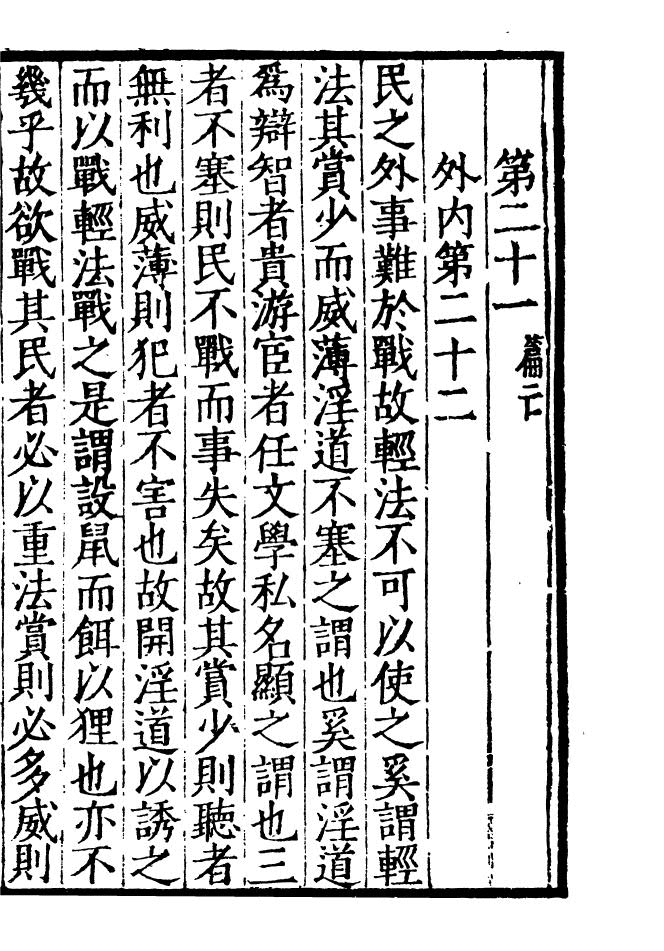 第二十一 篇亡
外内第二十二
民之外事難於戰故輕法不可以使之奚謂輕
法其賞少而威薄淫道不塞之謂也奚謂淫道
爲辯智者貴游宦者任文學私名顯之謂也三
者不塞則民不戰而事失矣故其賞少則聽者
無利也威薄則犯者不害也故開淫道以誘之
而以戰輕法戰之是謂設鼠而餌以狸也亦不
幾乎故欲戰其民者必以重法賞則必多威則